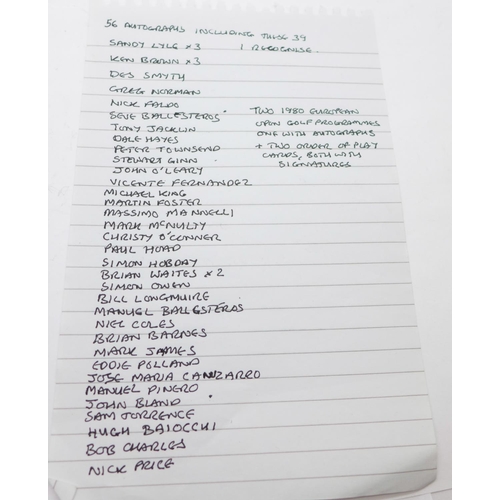 56 AUTOGRAPHS INCLUDING THOSE 39
I RECOGNISE.
SANDY LYLE x 3
KEN BROWN x 3
DES SMYTH
GREG NORMAN
NICK FALDO
SEVE BALLESTEROS
TONY JACKLIN
DALE HAYES
PETER TOWNSEND
STEWART GINN
JOHN O'LEARY
VICENTE FERNANDEZ
MICHAEL KING
MARTIN FOSTER
MASSIMO MANNELLI
MARK McNULTY
CHRISTY O'CONNER
PAUL HOAD
SIMON HOBDAY
BRIAN WAITES x 2
SIMON OWEN
BILL LONGMUIRE
MANUEL BALLESTEROS
NIEL COLES
BRIAN BARNES
MARK JAMES
EDDIE POLLAND
JOSE MARIA CANIZARRO
MANUEL PINERO
JOHN BLAND
SAM TORRENCE
HUGH BAIOCCHI
BOB CHARLES
NICK PRICE
TWO 1980 EUROPEAN
OPEN GOLF PROGRAMMES
ONE WITH AUTOGRAPHS
+ TWO ORDER OF PLAY
CARDS, BOTH WITH
SIGNATURES